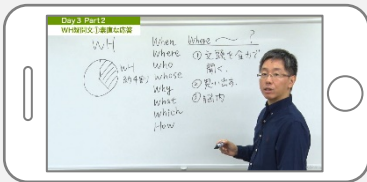 Day3 Part2
WH疑問文①素直な応答
WH
WH
約4割
When
Where
who
whose
why
what
which
How
Where 〜 ?
① 文頭を合わず
聞く.
② 思い出す.